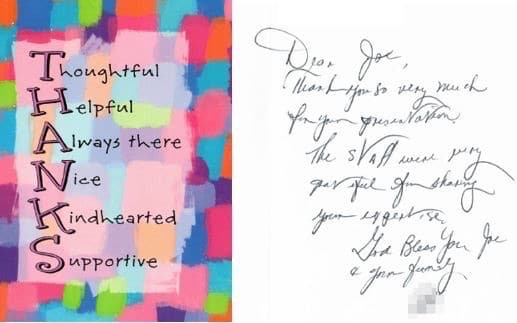 Thoughtful
Helpful
Always there
Nice
Kindhearted
Supportive
Dear Joe,
Thank you so very much
for your presentation.
The staff were very
grateful for sharing
your expertise.
God Bless You Joe
& your family